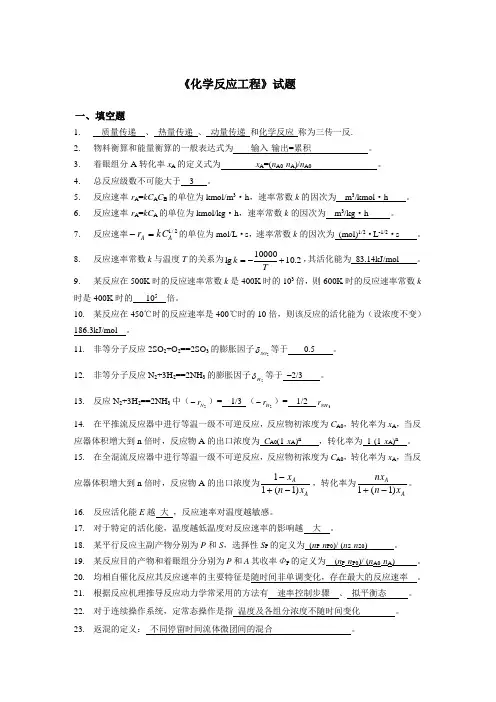 《化学反应工程》试题
一、填空题
1. 质量传递 、 热量传递 、 动量传递 和化学反应 称为三传一反.
2. 物料衡算和能量衡算的一般表达式为 输入-输出=累积 。
3. 着眼组分 A 转化率 xA 的定义式为 xA=(nA0-nA)/nA0 。
4. 总反应级数不可能大于 3 。
5. 反应速率 rA=kCACB 的单位为 kmol/m³·h，速率常数 k 的因次为 m³/kmol·h 。
6. 反应速率 rA=kCA 的单位为 kmol/kg·h，速率常数 k 的因次为 m³/kg·h 。
7. 反应速率 −rA = kCA^1/2 的单位为 mol/L·s，速率常数 k 的因次为 (mol)^1/2·L^-1/2·s 。
8. 反应速率常数 k 与温度 T 的关系为 lg k = −10000/T + 10.2，其活化能为 83.14kJ/mol 。
9. 某反应在 500K 时的反应速率常数 k 是 400K 时的 10³ 倍，则 600K 时的反应速率常数 k
时是 400K 时的 10⁵ 倍。
10. 某反应在 450℃时的反应速率是 400℃时的 10 倍，则该反应的活化能为（设浓度不变）
186.3kJ/mol 。
11. 非等分子反应 2SO2+O2==2SO3 的膨胀因子 δSO2 等于 0.5 。
12. 非等分子反应 N2+3H2==2NH3 的膨胀因子 δH2 等于 –2/3 。
13. 反应 N2+3H2==2NH3 中（−rN2）= 1/3 （−rH2）= 1/2 rNH3
14. 在平推流反应器中进行等温一级不可逆反应，反应物初浓度为 CA0，转化率为 xA，当反
应器体积增大到 n 倍时，反应物 A 的出口浓度为 CA0(1-xA)^n ，转化率为 1-(1-xA)^n 。
15. 在全混流反应器中进行等温一级不可逆反应，反应物初浓度为 CA0，转化率为 xA，当反
应器体积增大到 n 倍时，反应物 A 的出口浓度为 (1−xA)/(1+(n−1)xA)，转化率为 nxA/(1+(n−1)xA)。
16. 反应活化能 E 越 大 ，反应速率对温度越敏感。
17. 对于特定的活化能，温度越低温度对反应速率的影响越 大 。
18. 某平行反应主副产物分别为 P 和 S，选择性 SP 的定义为 (nP-nP0)/ (nS-nS0) 。
19. 某反应目的产物和着眼组分分别为 P 和 A 其收率 ΦP 的定义为 (nP-nP0)/ (nA0-nA) 。
20. 均相自催化反应其反应速率的主要特征是随时间非单调变化，存在最大的反应速率 。
21. 根据反应机理推导反应动力学常采用的方法有 速率控制步骤 、 拟平衡态 。
22. 对于连续操作系统，定常态操作是指 温度及各组分浓度不随时间变化 。
23. 返混的定义： 不同停留时间流体微团间的混合 。